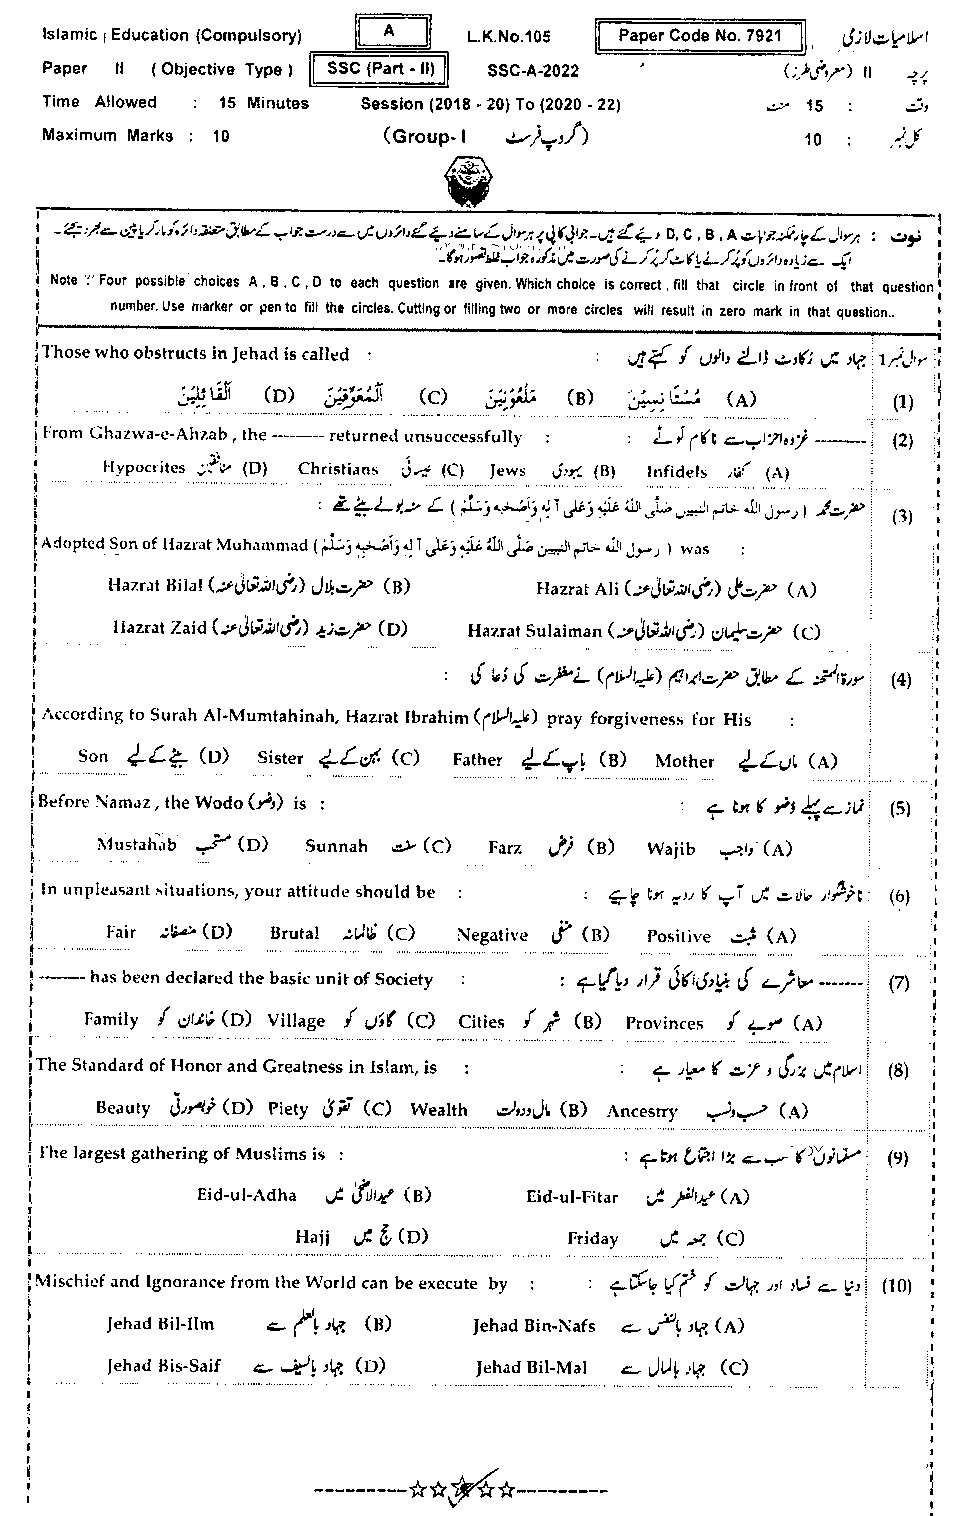 Islamic Education (Compulsory) A L.K.No.105 Paper Code No. 7921 اسلامیات لازمی
Paper II (Objective Type) SSC (Part - II) SSC-A-2022 پرچہ II (معروضی طرز)
Time Allowed : 15 Minutes Session (2018 - 20) To (2020 - 22) وقت : 15 منٹ
Maximum Marks : 10 (Group-I گروپ فرسٹ) کل نمبر : 10
نوٹ : ہر سوال کے چار ممکنہ جوابات D, C, B, A دیئے گئے ہیں۔ جوابی کاپی پر ہر سوال کے سامنے دیئے گئے دائروں میں سے درست جواب کے مطابق متعلقہ دائرہ کو مارکر یا پین سے بھر دیجئے۔
ایک سے زیادہ دائروں کو پُر کرنے یا کاٹ کر پُر کرنے کی صورت میں مذکورہ جواب غلط تصور ہوگا۔
Note : Four possible choices A, B, C, D to each question are given. Which choice is correct, fill that circle in front of that question
number. Use marker or pen to fill the circles. Cutting or filling two or more circles will result in zero mark in that question..
Those who obstructs in Jehad is called : جہاد میں رکاوٹ ڈالنے والوں کو کہتے ہیں : سوال نمبر 1
(1) (A) مُسْتَاْنِسِیْنَ (B) مَلْعُوْنِیْنَ (C) اَلْمُعَوِّقِیْنَ (D) اَلْقَائِلِیْنَ
From Ghazwa-e-Ahzab, the -------- returned unsuccessfully : غزوہ احزاب سے ناکام لوٹے -------- : (2)
Hypocrites منافقین (D) Christians عیسائی (C) Jews یہودی (B) Infidels کفار (A)
حضرت محمد (رسول اللہ خاتم النبیین صَلَّی اللہُ عَلَیْہِ وَعَلٰی آلِہٖ وَاَصْحٰبِہٖ وَسَلَّمْ) کے منہ بولے بیٹے تھے : (3)
Adopted Son of Hazrat Muhammad (رسول اللہ خاتم النبیین صَلَّی اللہُ عَلَیْہِ وَعَلٰی آلِہٖ وَاَصْحٰبِہٖ وَسَلَّمْ) was :
Hazrat Bilal حضرت بلال (رضی اللہ تعالیٰ عنہ) (B) Hazrat Ali حضرت علی (رضی اللہ تعالیٰ عنہ) (A)
Hazrat Zaid حضرت زید (رضی اللہ تعالیٰ عنہ) (D) Hazrat Sulaiman حضرت سلیمان (رضی اللہ تعالیٰ عنہ) (C)
سورۃ الممتحنہ کے مطابق حضرت ابراہیم (علیہ السلام) نے مغفرت کی دُعا کی : (4)
According to Surah Al-Mumtahinah, Hazrat Ibrahim (علیہ السلام) pray forgiveness for His :
Son بیٹے کے لیے (D) Sister بہن کے لیے (C) Father باپ کے لیے (B) Mother ماں کے لیے (A)
Before Namaz, the Wodo (وضو) is : نماز سے پہلے وضو کا ہونا ہے : (5)
Mustahab مستحب (D) Sunnah سنت (C) Farz فرض (B) Wajib واجب (A)
In unpleasant situations, your attitude should be : ناخوشگوار حالات میں آپ کا رویہ ہونا چاہیے : (6)
Fair منصفانہ (D) Brutal ظالمانہ (C) Negative منفی (B) Positive مثبت (A)
-------- has been declared the basic unit of Society : معاشرے کی بنیادی اکائی قرار دیا گیا ہے ------- : (7)
Family خاندان کو (D) Village گاؤں کو (C) Cities شہر کو (B) Provinces صوبے کو (A)
The Standard of Honor and Greatness in Islam, is : اسلام میں بزرگی و عزت کا معیار ہے : (8)
Beauty خوبصورتی (D) Piety تقویٰ (C) Wealth مال و دولت (B) Ancestry حسب و نسب (A)
The largest gathering of Muslims is : مسلمانوں کا سب سے بڑا اجتماع ہوتا ہے : (9)
Eid-ul-Adha عید الاضحیٰ میں (B) Eid-ul-Fitar عید الفطر میں (A)
Hajj حج میں (D) Friday جمعہ میں (C)
Mischief and Ignorance from the World can be execute by : دنیا سے فساد اور جہالت کو ختم کیا جا سکتا ہے : (10)
Jehad Bil-Ilm جہاد بالعلم سے (B) Jehad Bin-Nafs جہاد بالنفس سے (A)
Jehad Bis-Saif جہاد بالسیف سے (D) Jehad Bil-Mal جہاد بالمال سے (C)